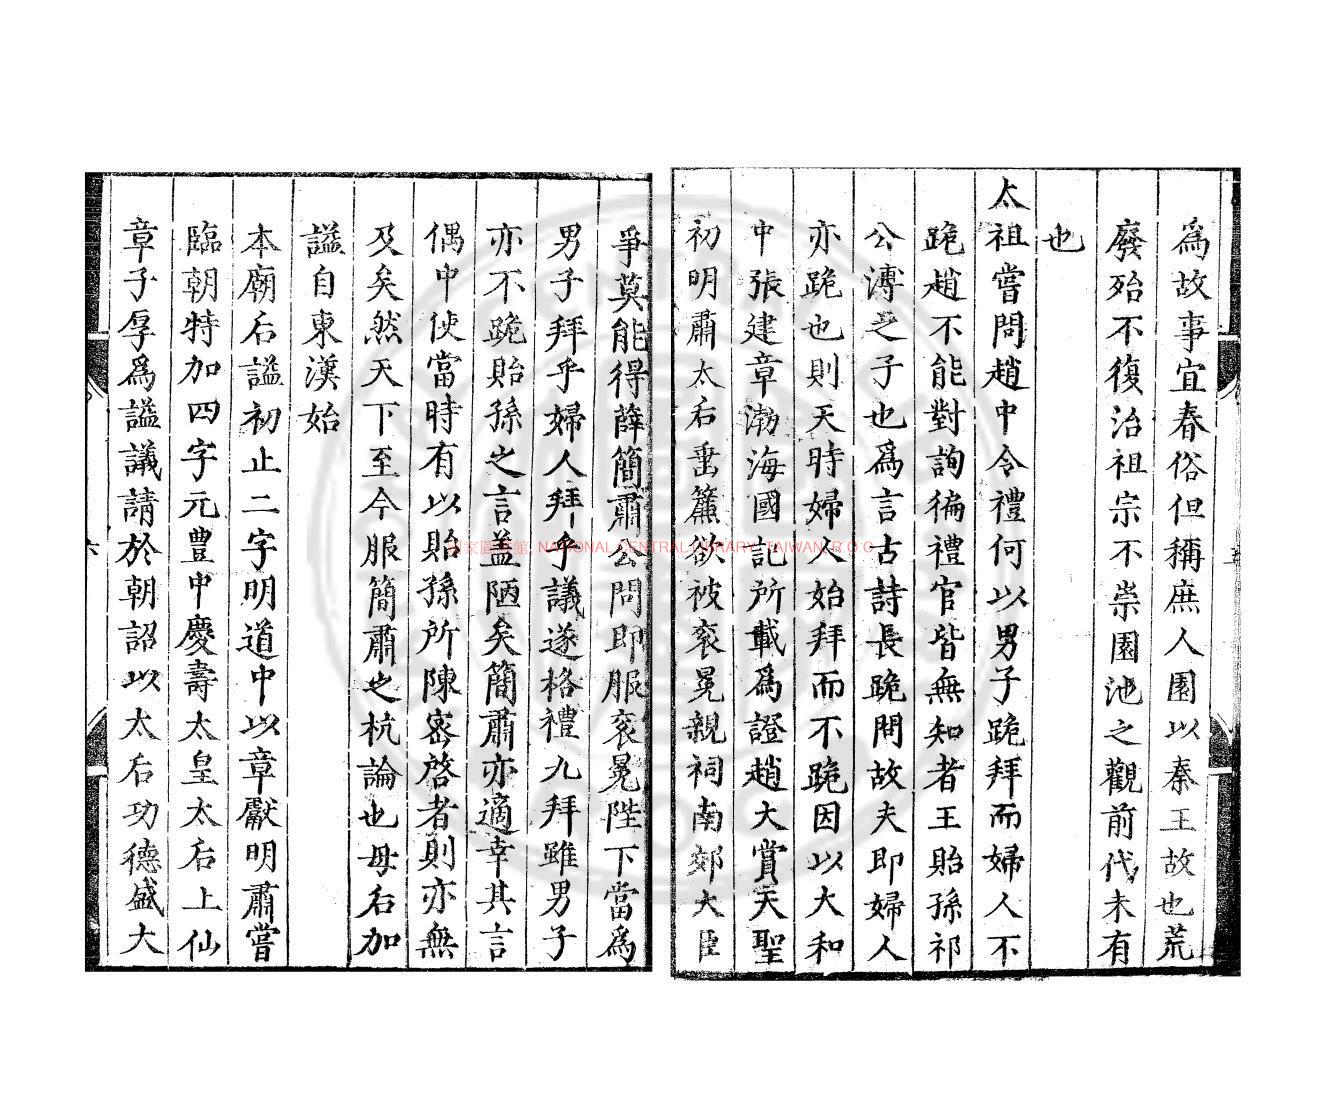 為故事宜春俗但稱庶人園以秦王故也荒
廢殆不復治祖宗不崇園池之觀前代未有
也
太祖嘗問趙中令禮何以男子跪拜而婦人不
跪趙不能對詢徧禮官皆無知者王貽孫祁
公溥之子也為言古詩長跪問故夫即婦人
亦跪也則天時婦人始拜而不跪因以大和
中張建章渤海國記所載為證趙大賞天聖
初明肅太后垂簾欲被衮冕親祠南郊大臣
爭莫能得薛簡肅公問即服衮冕陛下當為
男子拜乎婦人拜乎議遂格禮九拜雖男子
亦不跪貽孫之言益陋矣簡肅亦適幸其言
偶中使當時有以貽孫所陳密啓者則亦無
及矣然天下至今服簡肅之抗論也母后加
謚自東漢始
本廟后謚初止二字明道中以章獻明肅嘗
臨朝特加四字元豐中慶壽太皇太后上仙
章子厚為謚議請於朝詔以太后功德盛大
六
國家圖書館, NATIONAL CENTRAL LIBRARY, TAIWAN, R.O.C